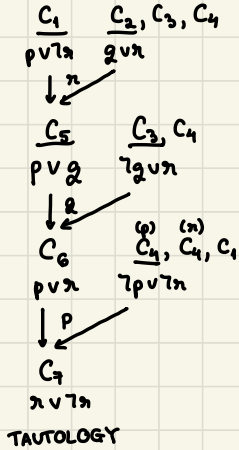 C₁ C₂, C₃, C₄
p∨¬r q∨r
r
C₅ C₃, C₄
p∨q ¬q∨r
q
(p) (r)
C₆ C₄, C₄, C₁
p∨r ¬p∨¬r
p
C₇
r∨¬r
TAUTOLOGY